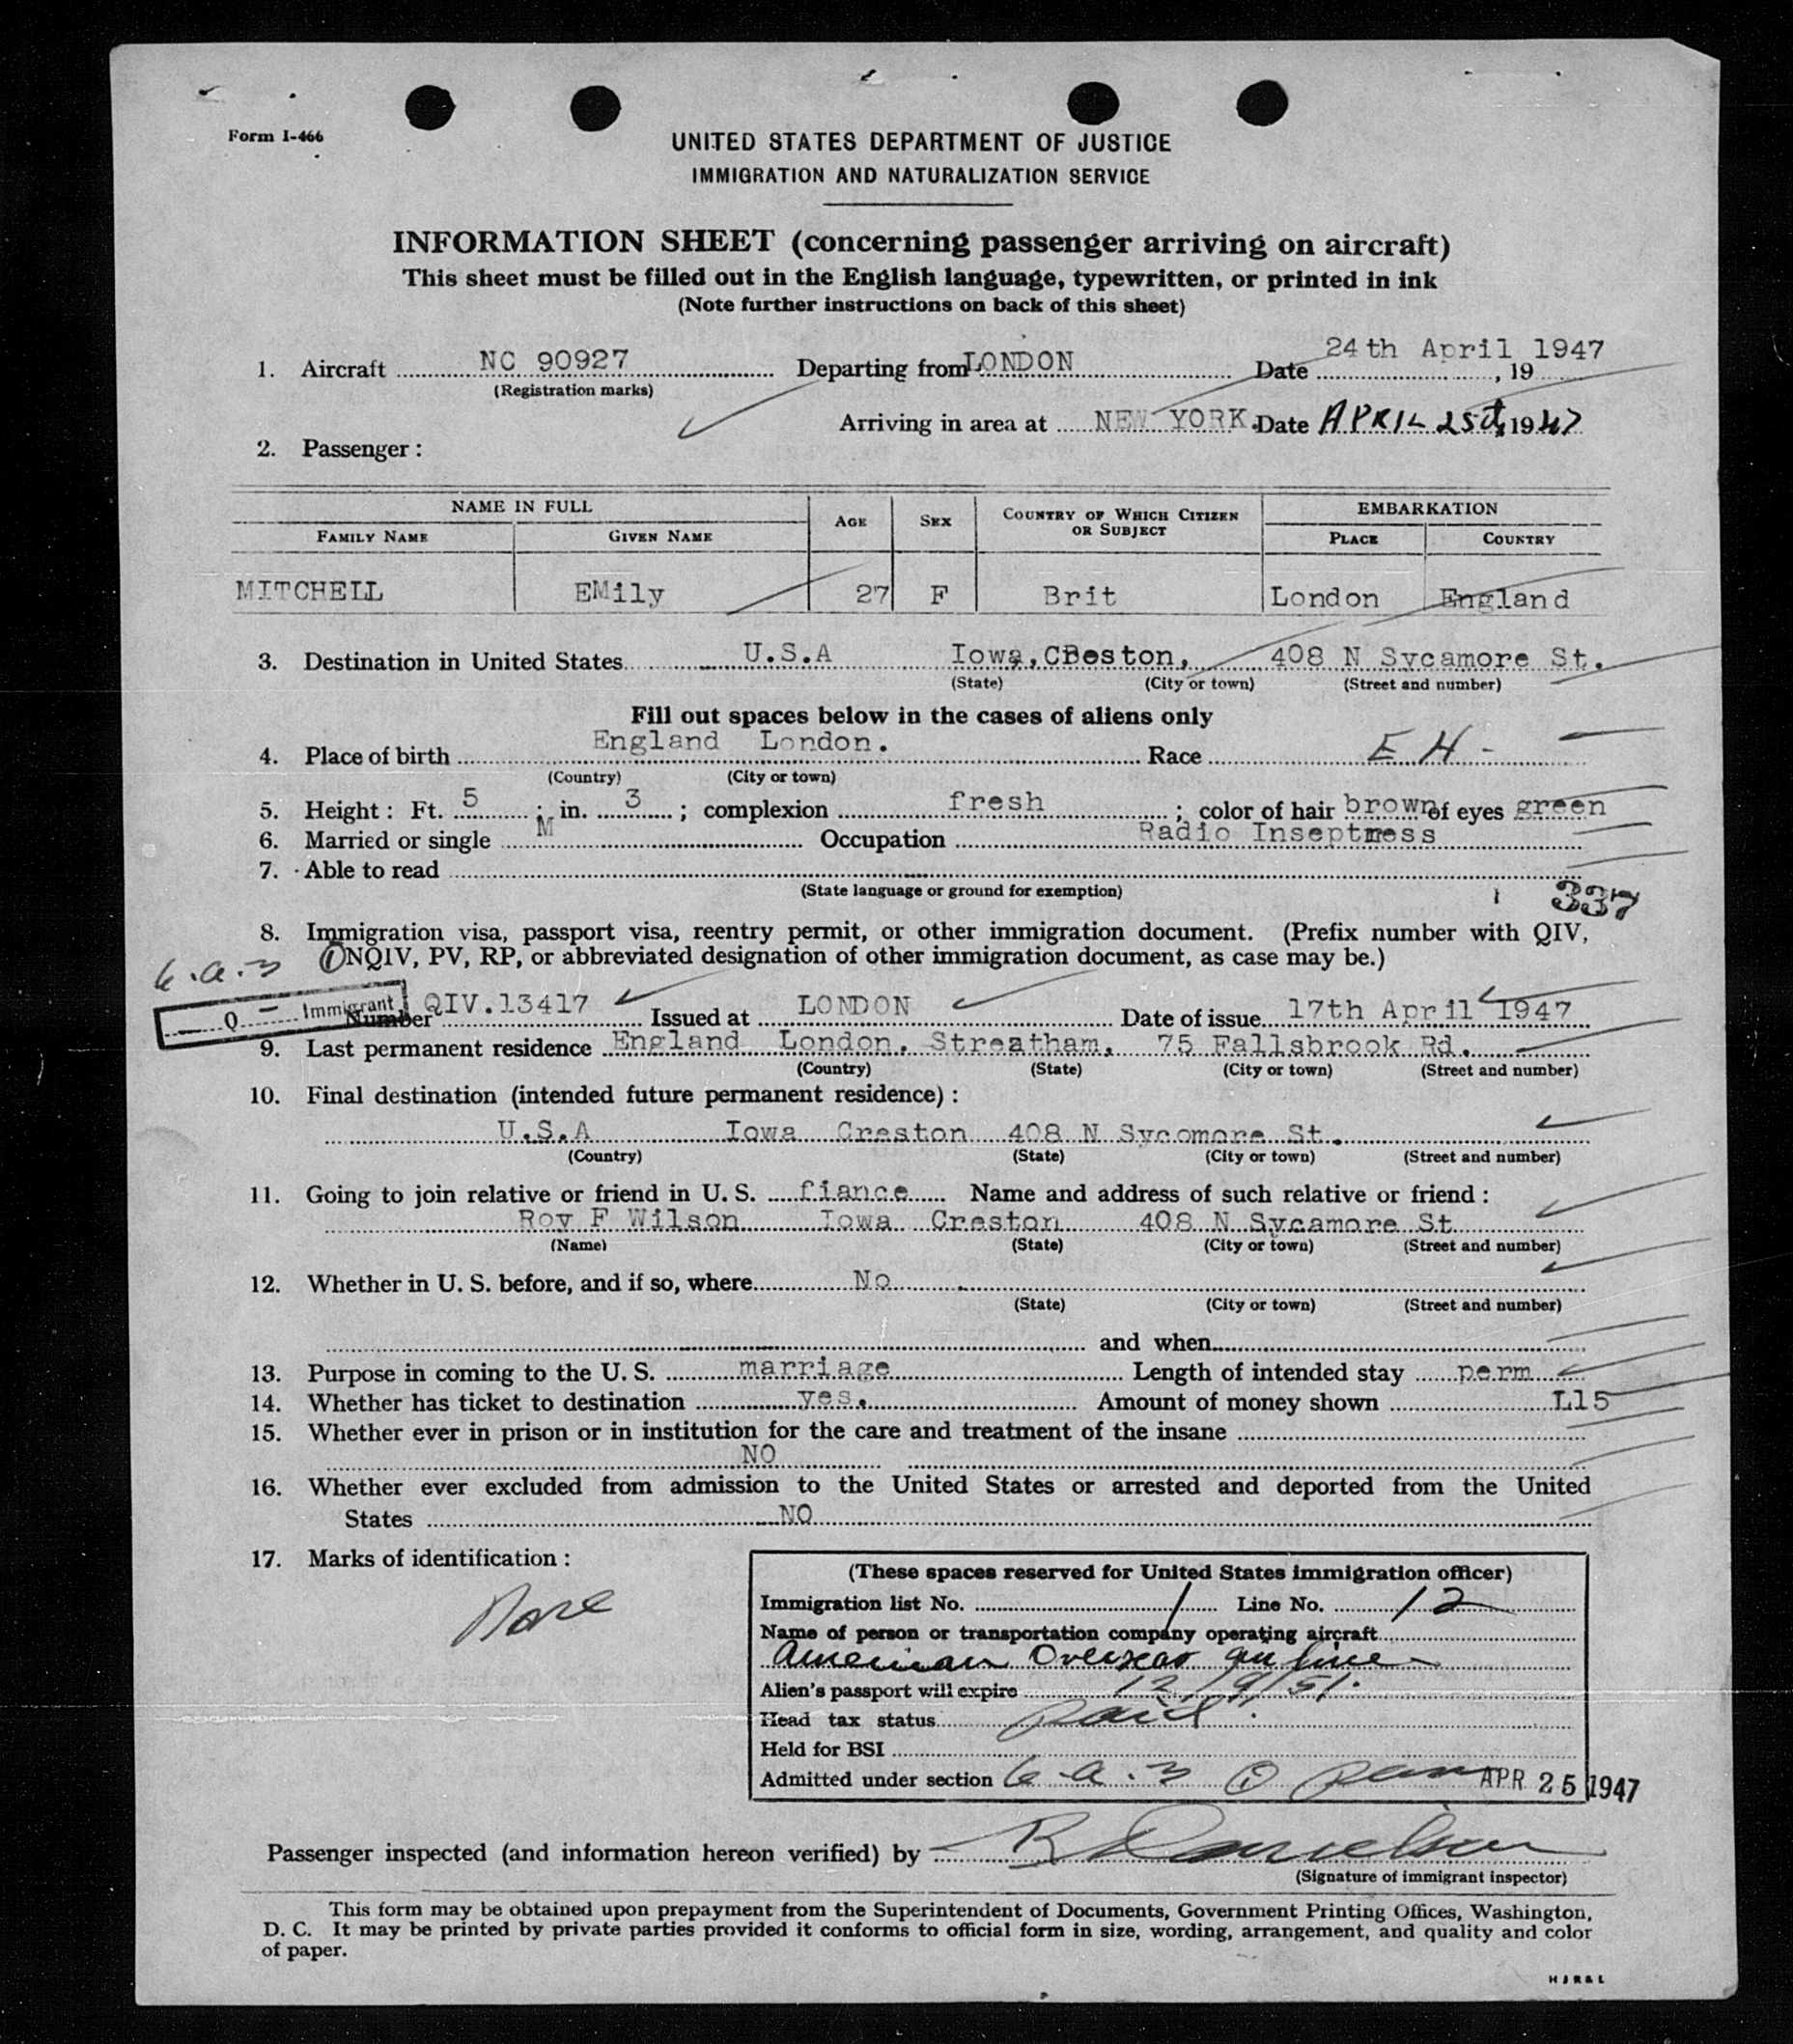 Form I-466
UNITED STATES DEPARTMENT OF JUSTICE
IMMIGRATION AND NATURALIZATION SERVICE
INFORMATION SHEET (concerning passenger arriving on aircraft)
This sheet must be filled out in the English language, typewritten, or printed in ink
(Note further instructions on back of this sheet)
1. Aircraft NC 90927 Departing from LONDON Date 24th April 1947, 19
(Registration marks)
Arriving in area at NEW YORK. Date APRIL 25th, 1947
2. Passenger:
NAME IN FULL AGE SEX COUNTRY OF WHICH CITIZEN OR SUBJECT EMBARKATION
FAMILY NAME GIVEN NAME PLACE COUNTRY
MITCHELL EMily 27 F Brit London England
3. Destination in United States U.S.A Iowa, Creston, 408 N Sycamore St.
(State) (City or town) (Street and number)
Fill out spaces below in the cases of aliens only
4. Place of birth England London. Race E H -
(Country) (City or town)
5. Height: Ft. 5; in. 3; complexion fresh; color of hair brown of eyes green
6. Married or single M Occupation Radio Inseptress
7. Able to read
(State language or ground for exemption)
337
8. Immigration visa, passport visa, reentry permit, or other immigration document. (Prefix number with QIV,
NQIV, PV, RP, or abbreviated designation of other immigration document, as case may be.)
6.a.3
Q Immigrant
Number QIV.13417 Issued at LONDON Date of issue 17th April 1947
9. Last permanent residence England London, Streatham, 75 Fallsbrook Rd.
(Country) (State) (City or town) (Street and number)
10. Final destination (intended future permanent residence):
U.S.A Iowa Creston 408 N Sycomore St.
(Country) (State) (City or town) (Street and number)
11. Going to join relative or friend in U. S. fiance Name and address of such relative or friend:
Roy F Wilson Iowa Creston 408 N Sycamore St
(Name) (State) (City or town) (Street and number)
12. Whether in U. S. before, and if so, where No
(State) (City or town) (Street and number)
and when
13. Purpose in coming to the U. S. marriage Length of intended stay perm
14. Whether has ticket to destination yes. Amount of money shown L15
15. Whether ever in prison or in institution for the care and treatment of the insane
NO
16. Whether ever excluded from admission to the United States or arrested and deported from the United
States NO
17. Marks of identification:
None
(These spaces reserved for United States immigration officer)
Immigration list No. 1 Line No. 12
Name of person or transportation company operating aircraft
American Overseas Air Line
Alien's passport will expire 12/9/51.
Head tax status paid.
Held for BSI
Admitted under section 6.a.3 (1) perm APR 25 1947
Passenger inspected (and information hereon verified) by R Danielson
(Signature of immigrant inspector)
This form may be obtained upon prepayment from the Superintendent of Documents, Government Printing Offices, Washington,
D. C. It may be printed by private parties provided it conforms to official form in size, wording, arrangement, and quality and color
of paper.
HJR&L